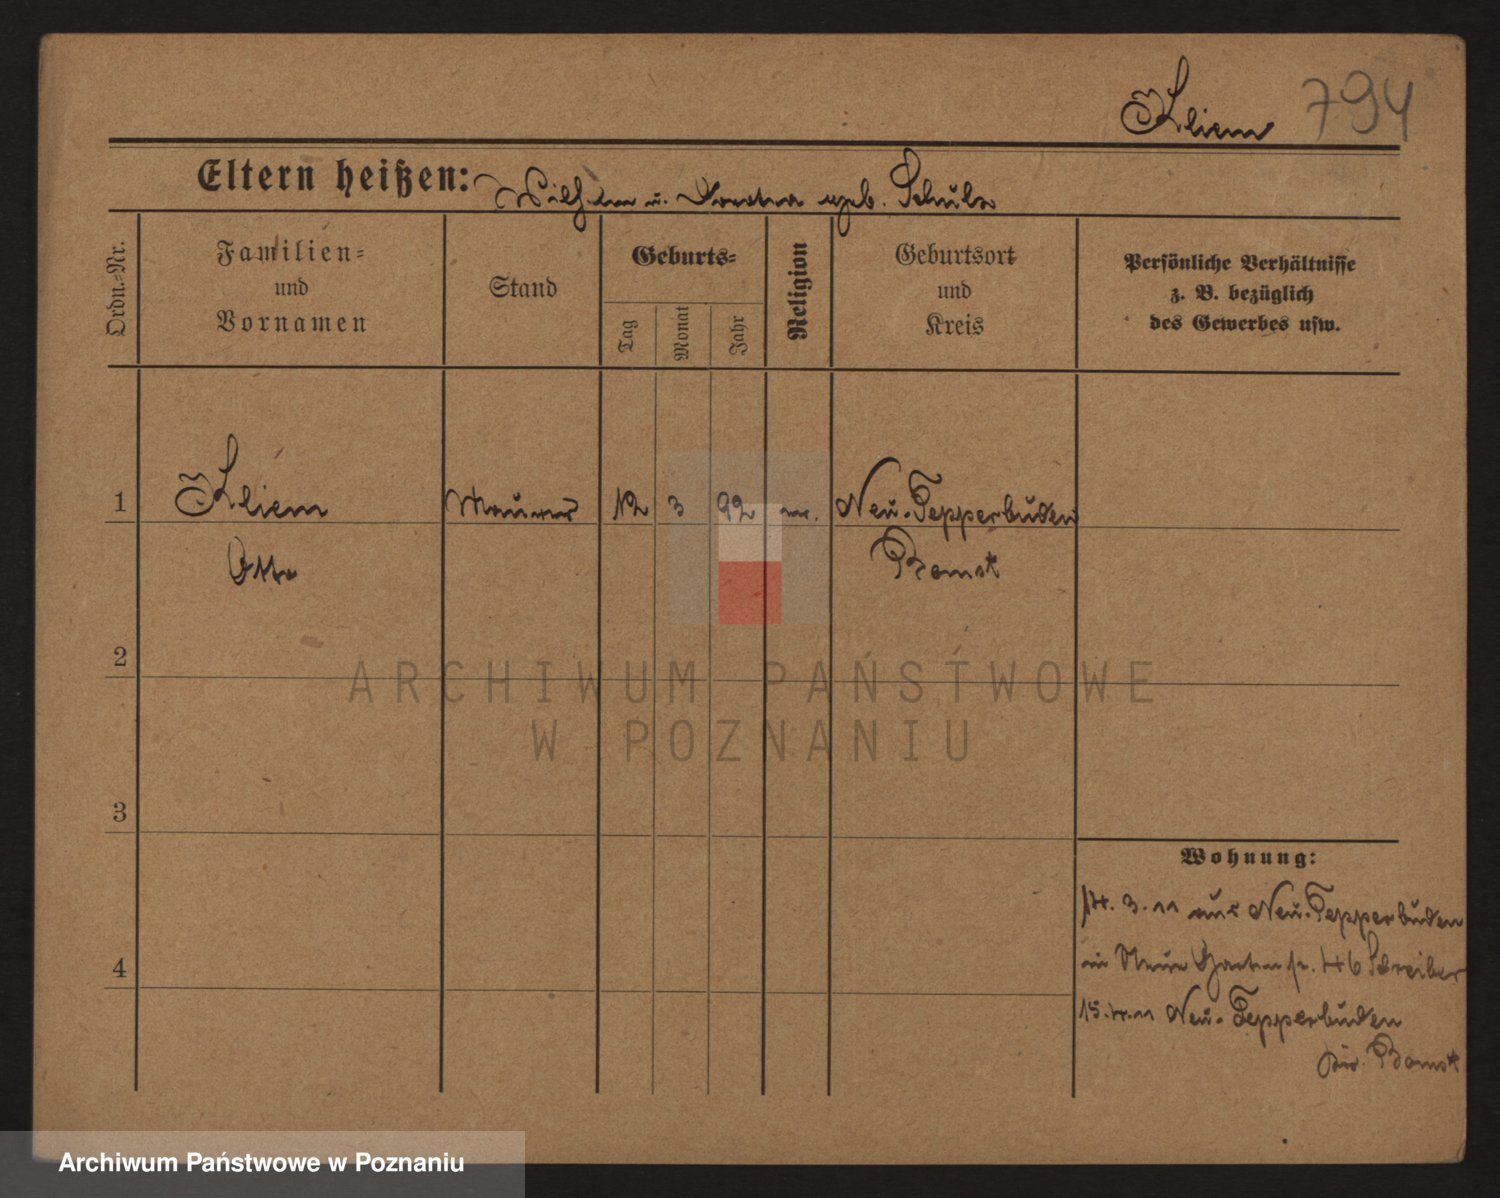 Kliem 794
Eltern heißen: Wilhelm u. Dorothea geb. Schulz
Ordn.-Nr.
Familien-
und
Vornamen
Stand
Geburts-
Tag
Monat
Jahr
Religion
Geburtsort
und
Kreis
Persönliche Verhältnisse
z. B. bezüglich
des Gewerbes usw.
1 Kliem Maurer 12 3 92 ev. Neu-Tepperbuden
Otto Bomst
2
3
4
Wohnung:
14. 3. 11 aus Neu-Tepperbuden
in Neue Gartenstr. 46 Schreiber
15.4.11 Neu-Tepperbuden
Bomst
ARCHIWUM PAŃSTWOWE
W POZNANIU
Archiwum Państwowe w Poznaniu